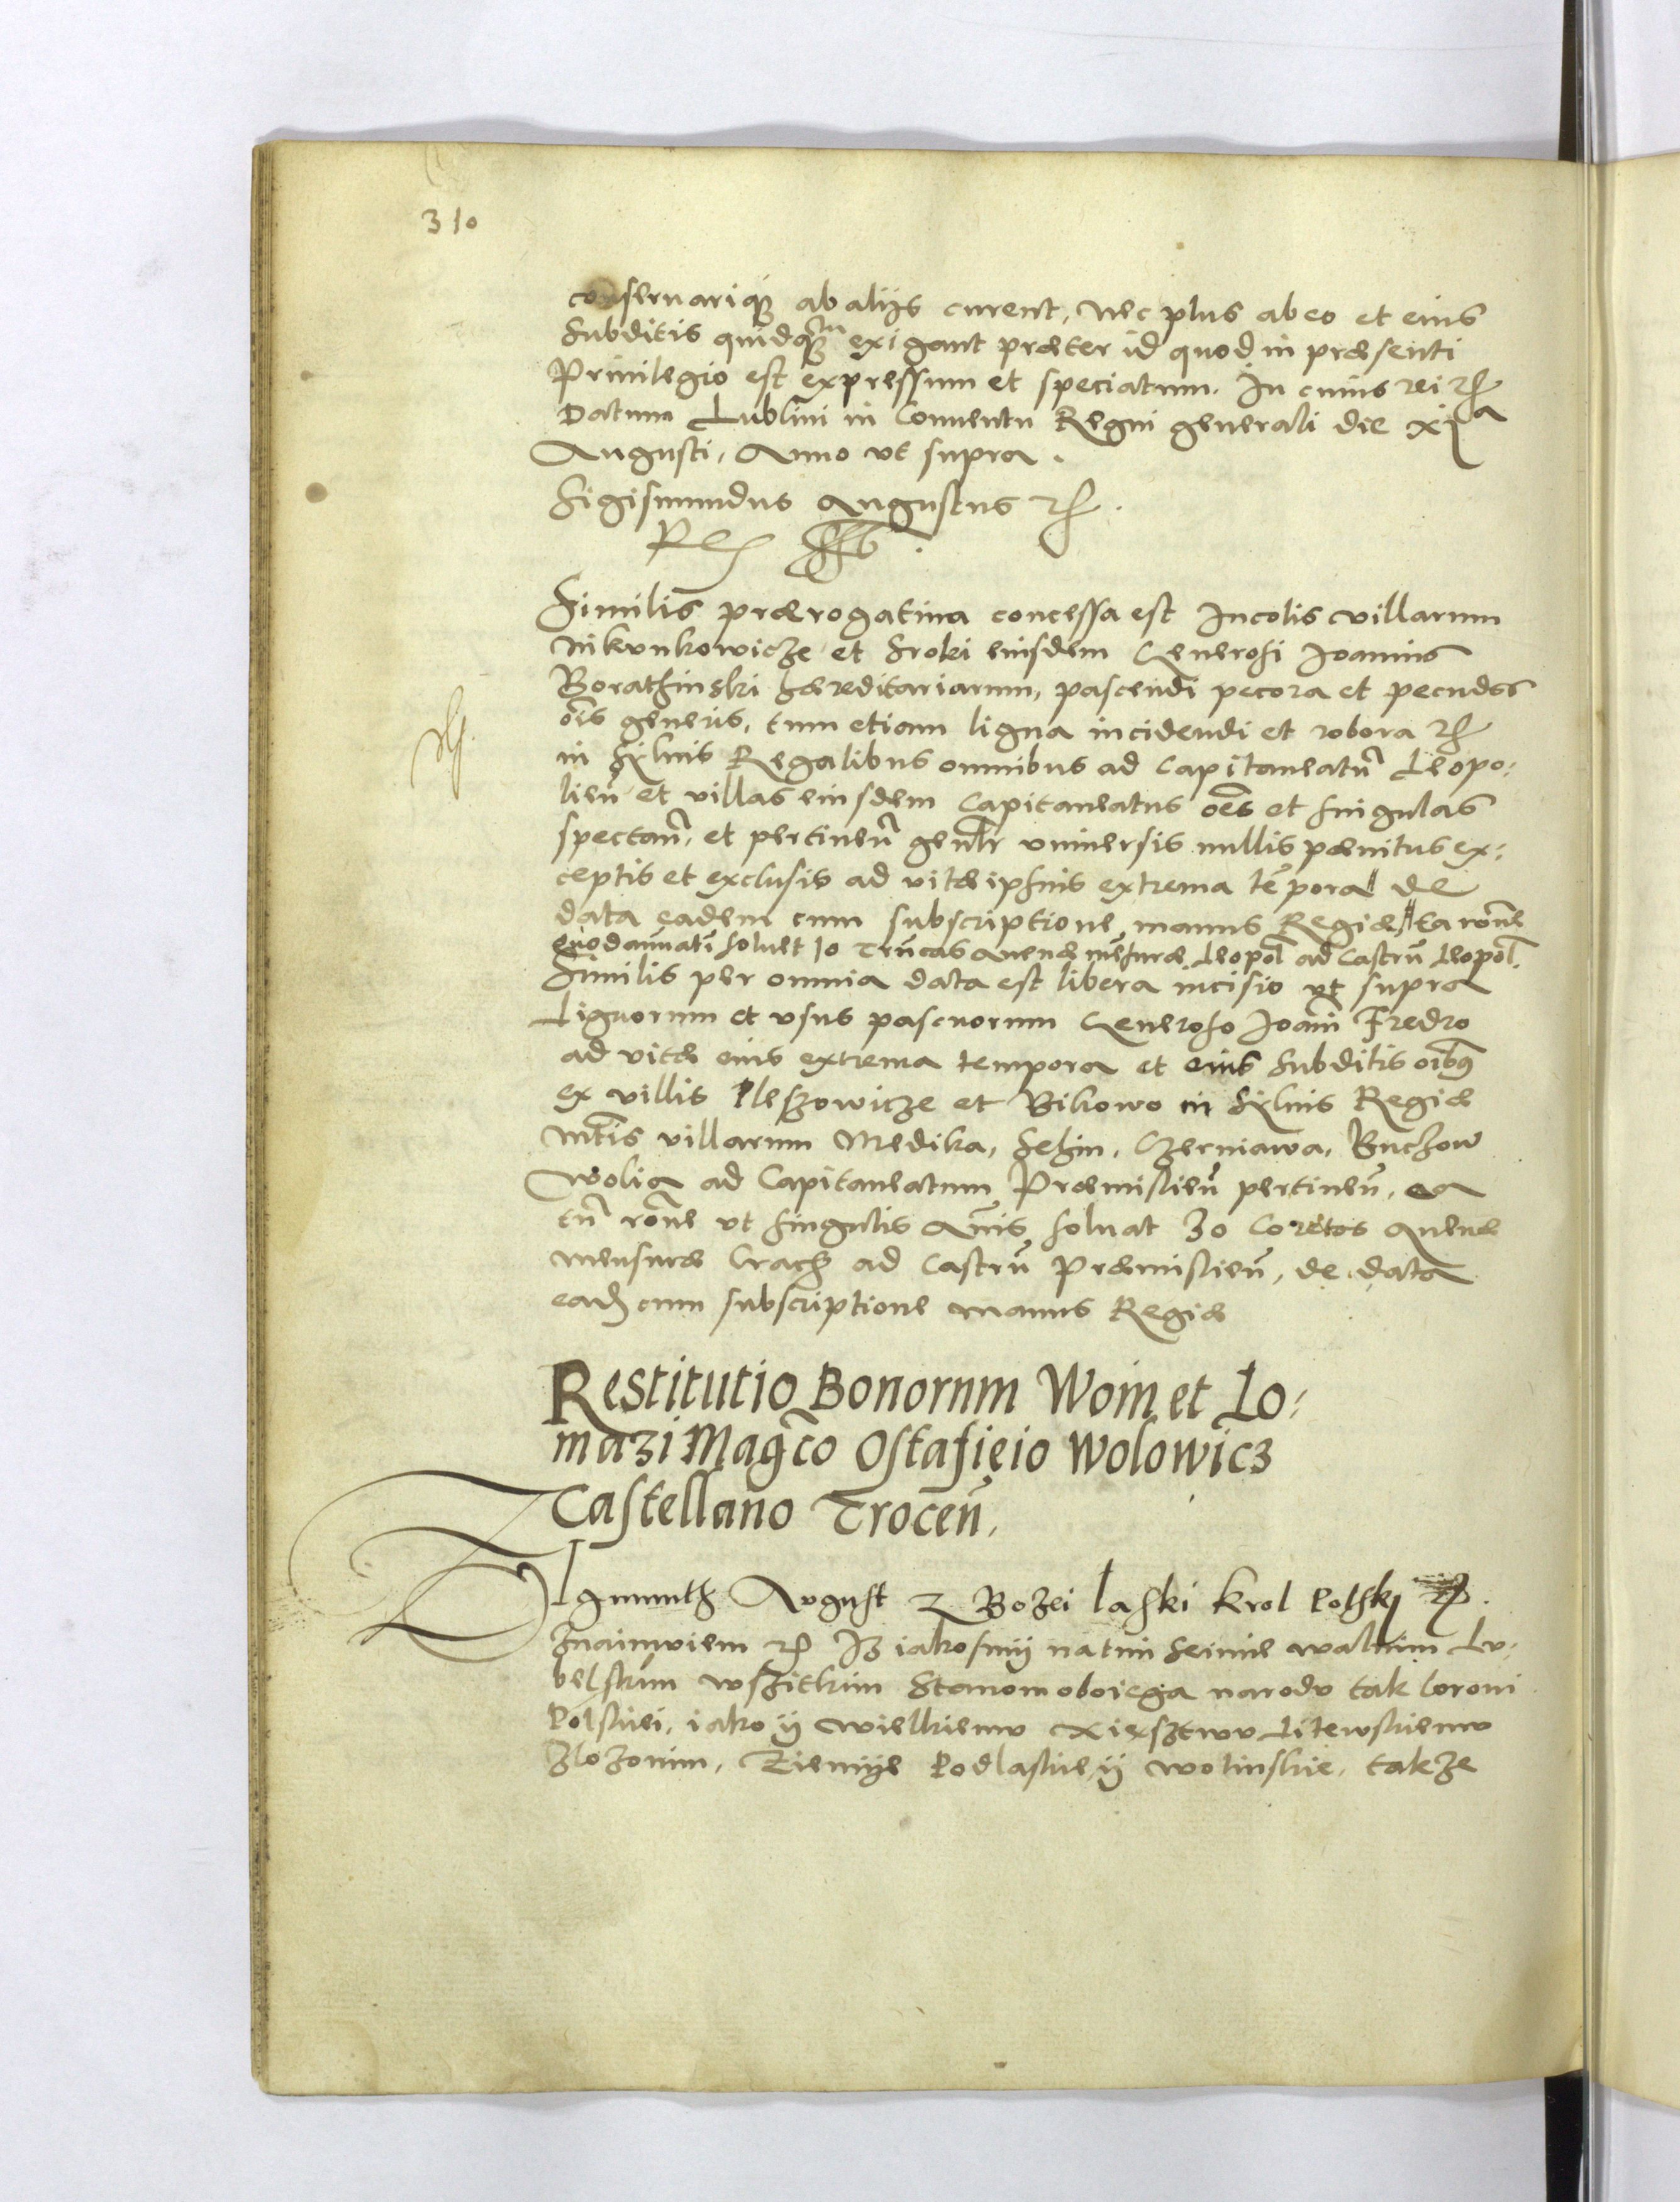 310
conseruarique ab alijs curent, nec plus ab eo et eius
Subditis quidquam exigant præter id quod in præsenti
Priuilegio est expressum et speciatum. In cuius rei etc
Datum Lublini in Conuentu Regni generali die xija
Augusti, Anno vt supra.
Sigismundus Augustus etc.
Rex sst.
Similis prærogatiua concessa est Incolis villarum
Nikunkowicze et Sroki eiusdem Generosi Joannis
Borathinski hæreditariarum, pascendi pecora et pecudes
oīs generis, tum etiam ligna incidendi et robora etc
in syluis Regalibus omnibus ad Capitaneatū Leopo:
lieñ et villas eiusdem Capitaneatus oēs et singulas
spectañ, et pertineñ genlr vniuersis nullis pænitus ex:
ceptis et exclusis ad vitæ ipsius extrema tēpora de
data eadem cum subscriptione manus Regiæ, ea rōne
quod annuatī soluet 10 trūcas auenæ mēsuræ Leopol ad Castrū Leopol.
Similis per omnia data est libera incisio vt supra
Lignorum et vsus pascuorum Generoso Joañi Fredro
ad vitæ eius extrema tempora et eius subditis oībus
ex villis Pleszowicze et Bikowo in syluis Regiæ
Mtīs villarum Medika, Sehin, Czerniawa, Buczow
Wolia ad Capitaneatum Præmislieñ pertineñ, ea
tñ rōne vt singulis Annis soluat 30 Coretos Auenæ
mensuræ Crach ad Castrū Præmislieñ, de data
eadem cum subscriptione manus Regiæ
Restitutio Bonorum Woin et Lo:
mazi Magco Ostafieio Wolowicz
Castellano Troceñ,
Zigmunth August Z Bozei laski Krol Polski etc.
Znaimuiem etc Iz iakosmij na tim seimie walnim Lu,
belskim wszitkim Stanom oboiega narodu tak Coroni
Polskiei, iako ij Wielkiemu Xiesztwu Litewskiemu
Zlozonim, Ziemije Podlaskie ij Wolinskie, takze